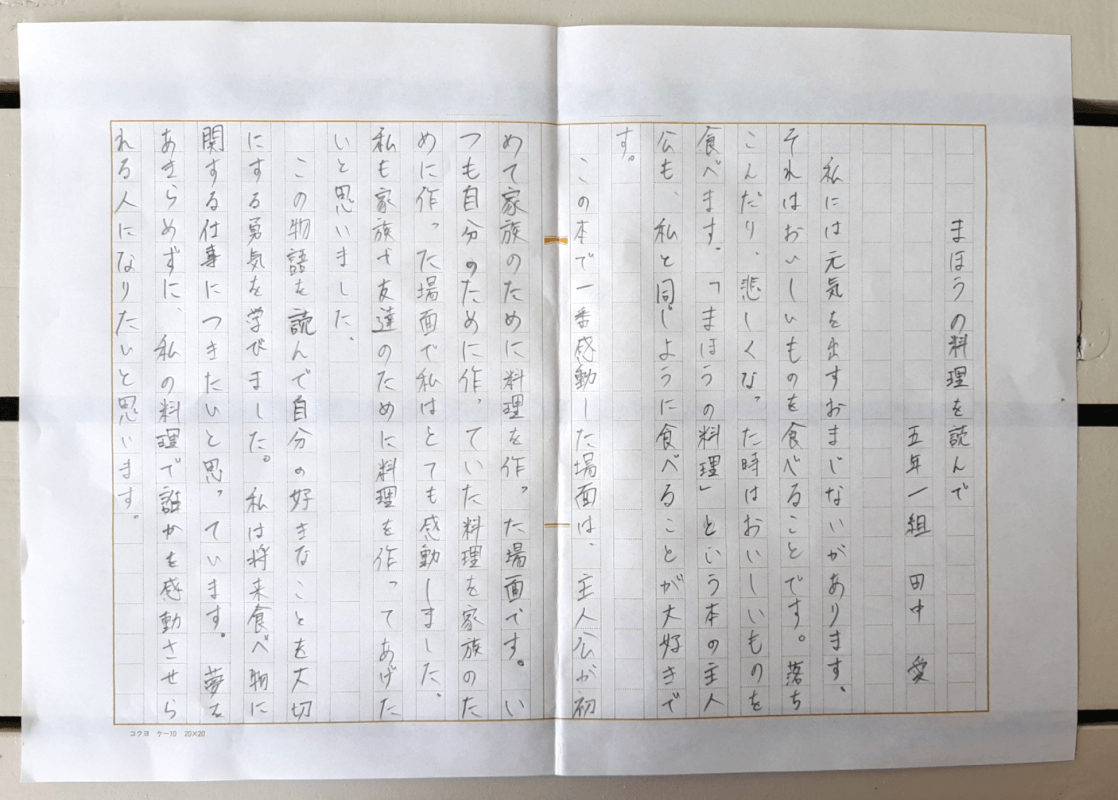 まほうの料理を読んで
五年一組 田中 愛
私には元気を出すおまじないがあります。
それはおいしいものを食べることです。落ち
こんだり、悲しくなった時はおいしいものを
食べます。「まほうの料理」という本の主人
公も、私と同じように食べることが大好きで
す。
この本で一番感動した場面は、主人公が初
めて家族のために料理を作った場面です。い
つも自分のために作っていた料理を家族のた
めに作った場面で私はとても感動しました。
私も家族や友達のために料理を作ってあげた
いと思いました。
この物語を読んで自分の好きなことを大切
にする勇気を学びました。私は将来食べ物に
関する仕事につきたいと思っています。夢を
あきらめずに、私の料理で誰かを感動させら
れる人になりたいと思います。
コクヨ ケー10 20×20